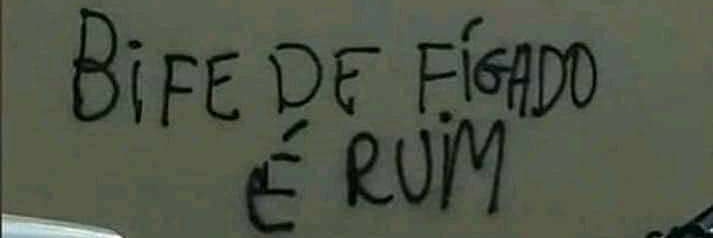 BiFE DE FÍGADO
É RUiM